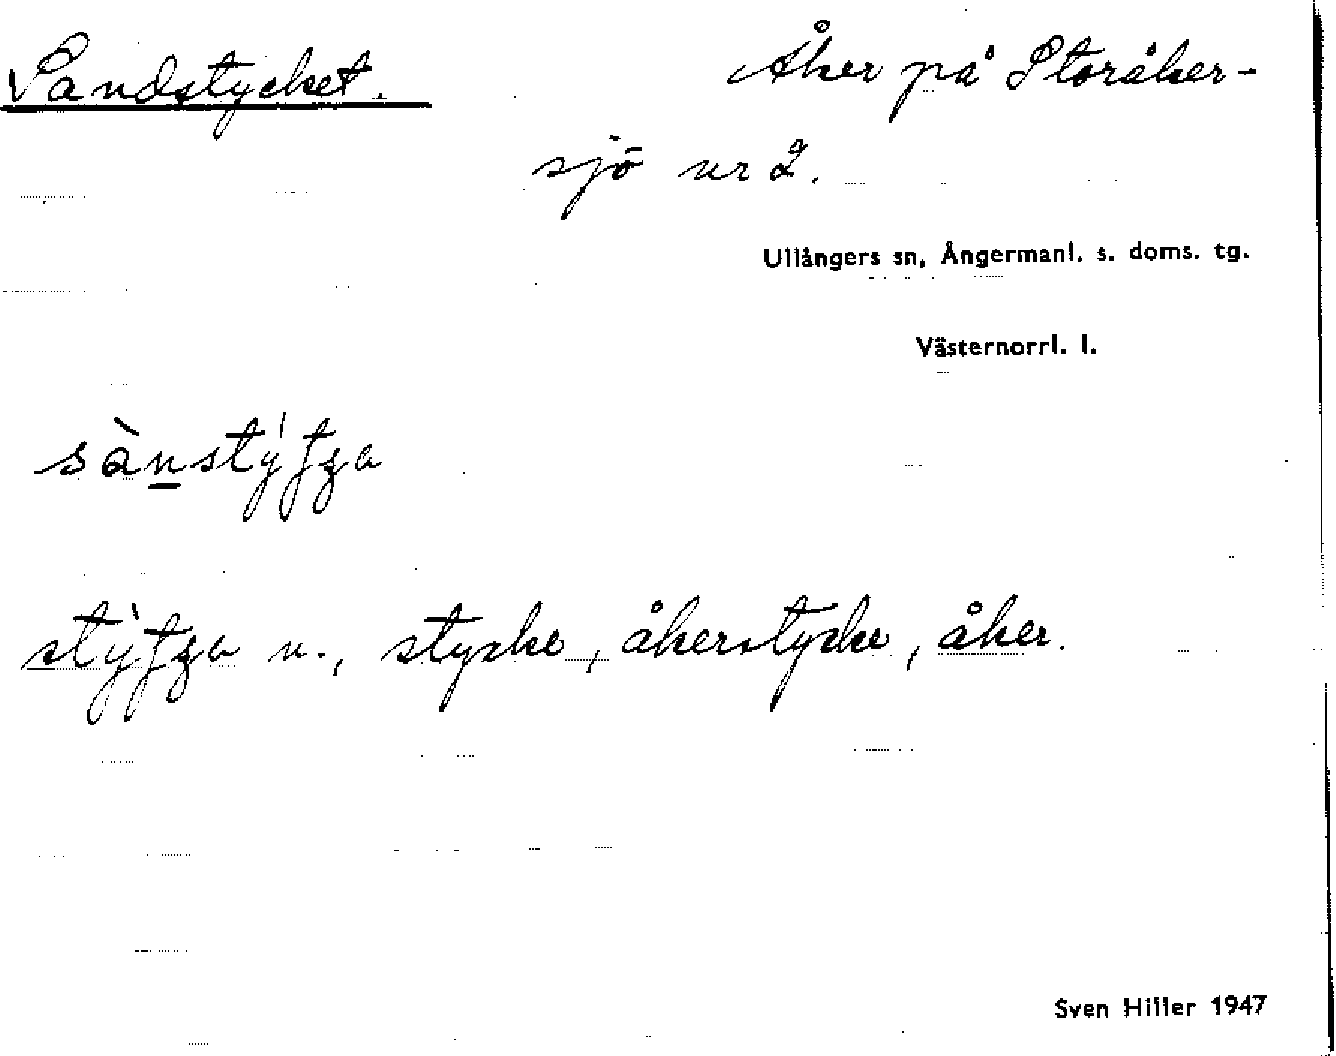 Sandstycket.
Åker på Storåker-
sjö nr 2.
Ullångers sn, Ångermanl. s. doms. tg.
Västernorrl. l.
n., stycke, åkerstycke, åker.
Sven Hiller 1947